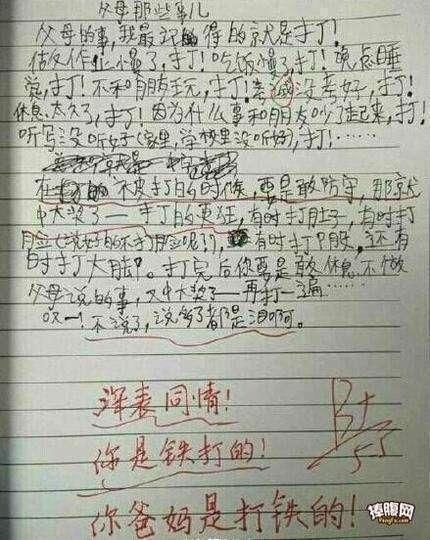 父母那些事儿
父母的事,我最记得的就是打了!
做作业慢了,打!吃饭慢了,打!晚点睡
觉,打!不和朋友玩,打!考没考好,打!
休息太久了,打!因为什么事和朋友吵了起来,打!
听写没听好(家里,学校里没听好),打!……
在被打的时候,要是敢防守,那就
中大奖了——打的更狂,有时打肚子,有时打
脸(说好的不打脸呢?),有时打屁股,还有
时打大腿。打完后你要是敢休息不做
父母说的事,又中大奖了——再打一遍……
哎——!不说了,说多了都是泪啊。
深表同情!
你是铁打的!
你爸妈是打铁的!
B+
5.5
捧腹网
PengFu.com